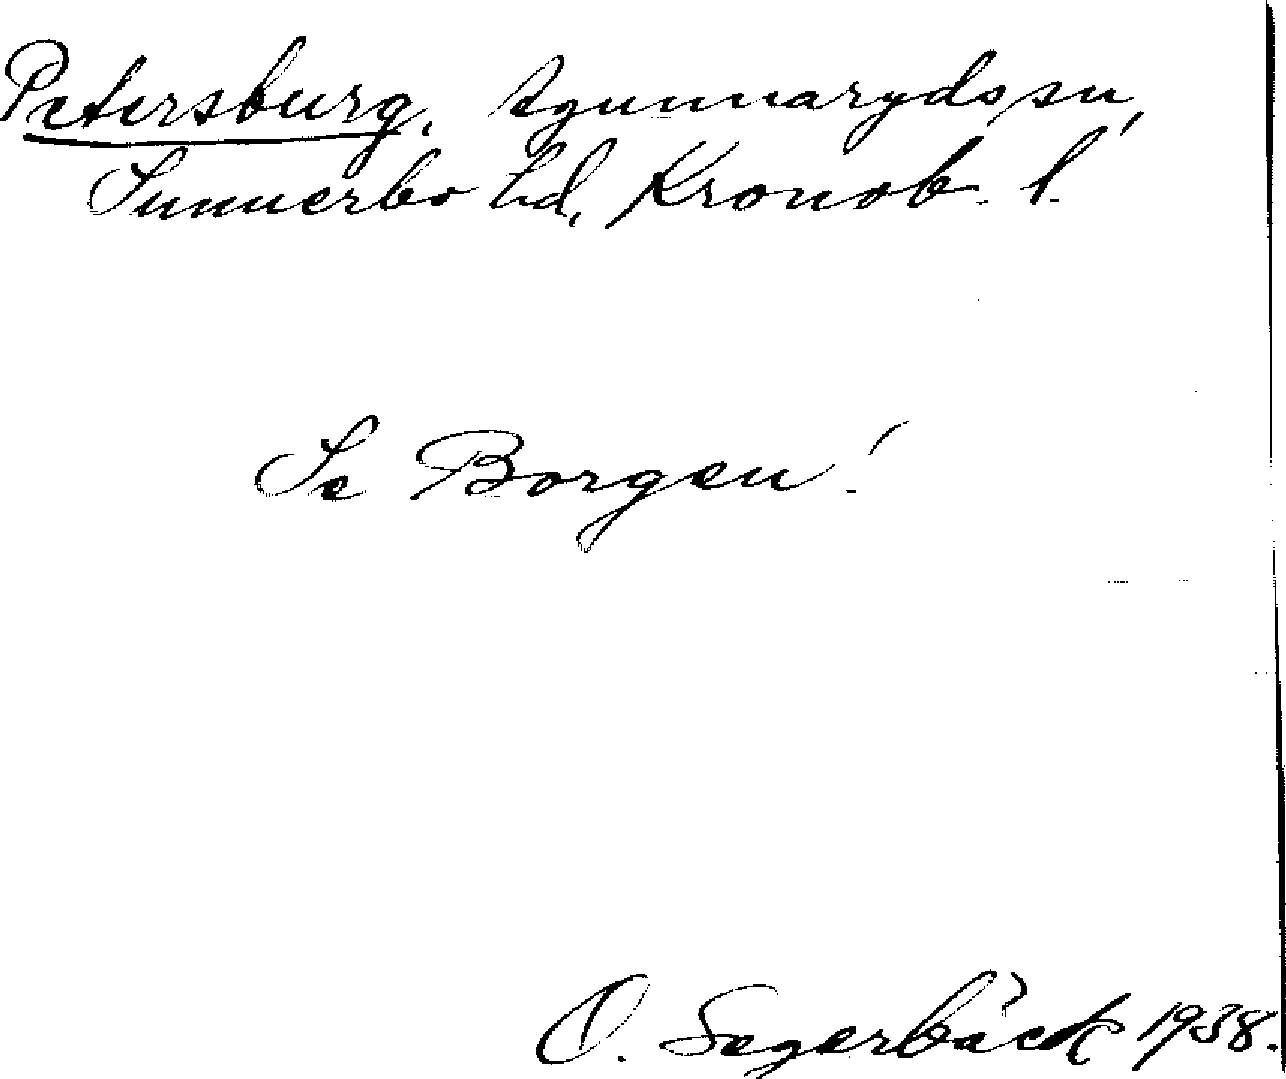 Petersburg, Agunnarydssn,
Sunnerbo hd, Kronob. l.
Se Borgen!
O. Segerbäck 1938.